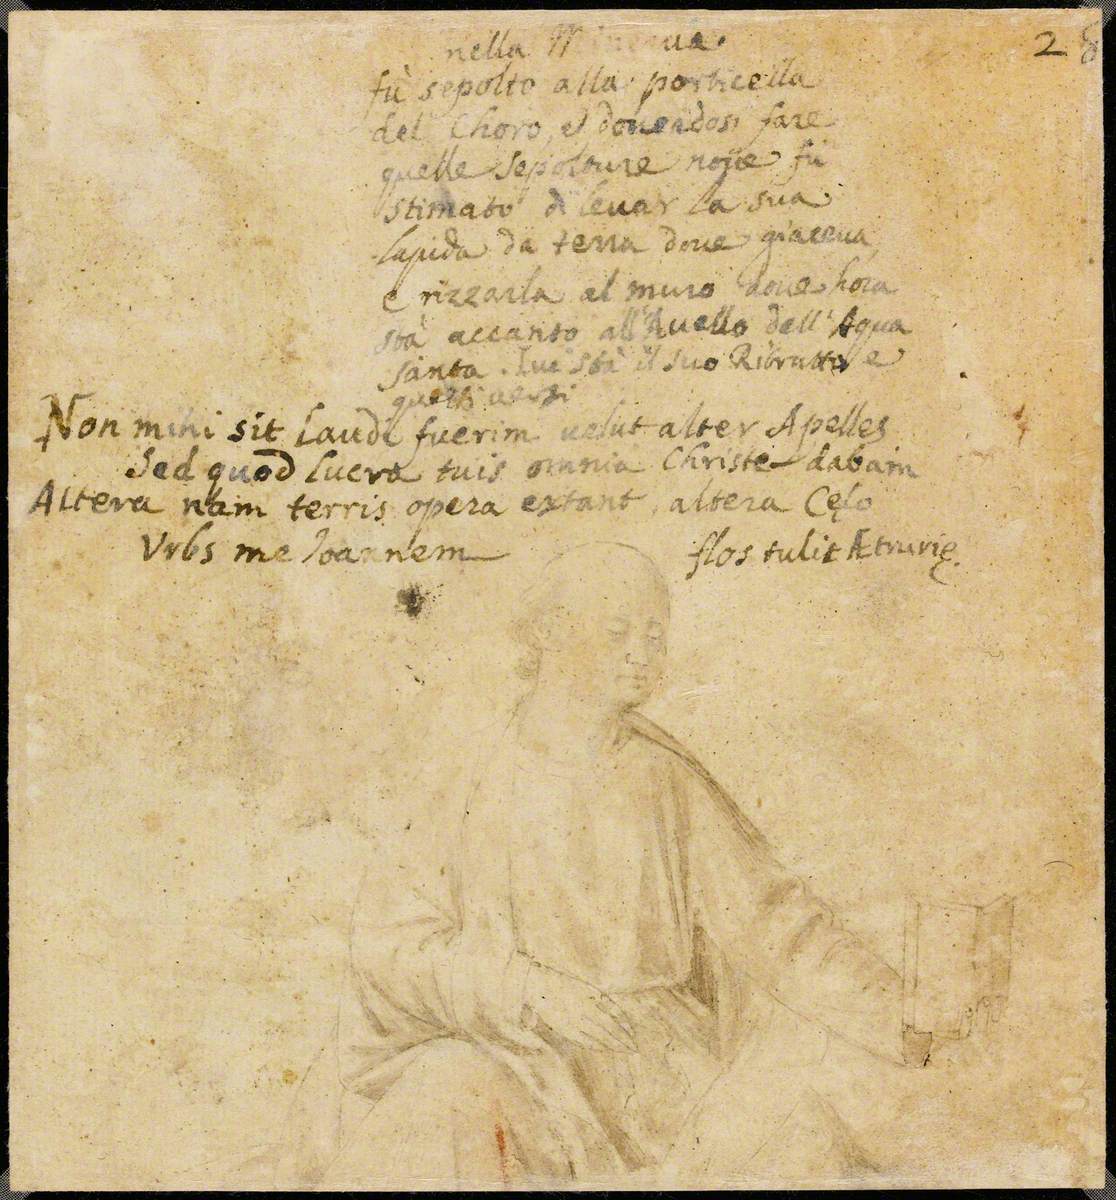 28
nella Minerva.
fù sepolto alla porticella
del Choro, et douendosi fare
quelle sepolture noue fù
stimato di leuar la sua
lapida da terra doue giaceua
e rizzarla al muro doue hora
stà accanto all'Auello dell'Aqua
santa. Iui stà il suo Ritratto e
questi uersi
Non mihi sit laudi fuerim uelut alter Apelles
Sed quod lucra tuis omnia Christe dabam
Altera nam terris opera extant, altera Cęlo
Vrbs me Ioannem flos tulit Ætrurię.